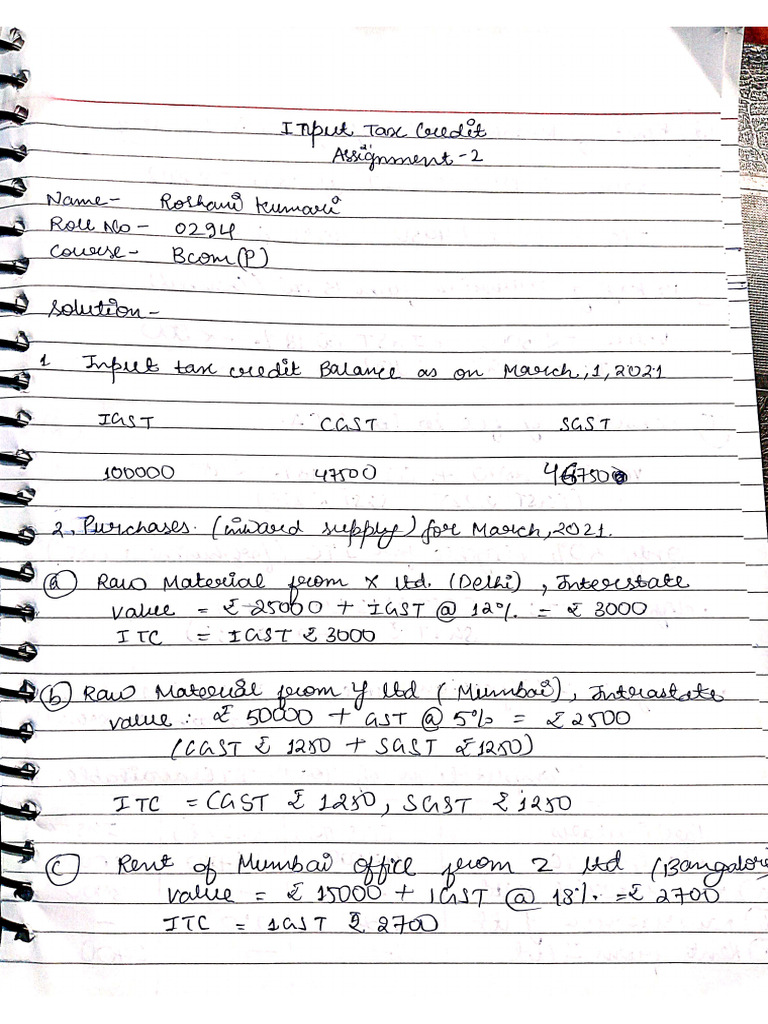 Input Tax Credit
Assignment-2
Name- Roshani Kumari
Roll No - 0294
Course- Bcom(P)
Solution-
1 Input tax credit Balance as on March, 1, 2021
IGST CGST SGST
100000 47500
2. Purchases. (inward supply) for March, 2021.
(a) Raw Material from X ltd. (Delhi), Interstate
value = ₹ 25000 + IGST @ 12% = ₹ 3000
ITC = IGST ₹ 3000
(b) Raw Material from Y ltd (Mumbai), Intrastate
value: ₹ 50000 + GST @ 5% = ₹ 2500
(CGST ₹ 1250 + SGST ₹ 1250)
ITC = CGST ₹ 1250, SGST ₹ 1250
(c) Rent of Mumbai office from Z ltd (Bangalore
value = ₹ 15000 + IGST @ 18% = ₹ 2700
ITC = IGST ₹ 2700